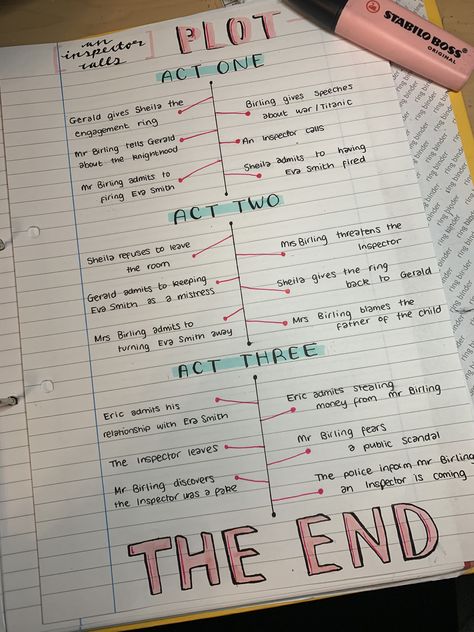 an
inspector
calls
PLOT
ACT ONE
Gerald gives Sheila the
engagement ring
Birling gives speeches
about war/Titanic
Mr Birling tells Gerald
about the knighthood
An inspector calls
Mr Birling admits to
firing Eva Smith
Sheila admits to having
Eva Smith fired
ACT TWO
Sheila refuses to leave
the room
Ms Birling threatens the
Inspector
Gerald admits to keeping
Eva Smith as a mistress
Sheila gives the ring
back to Gerald
Mrs Birling admits to
turning Eva Smith away
Mrs Birling blames the
father of the child
ACT THREE
Eric admits his
relationship with Eva Smith
Eric admits stealing
money from Mr Birling
The Inspector leaves
Mr Birling fears
a public scandal
Mr Birling discovers
the Inspector was a fake
The police inform Mr Birling
an Inspector is coming
THE END
STABILO BOSS
ORIGINAL
ring binder
ring binder
ring binder
ring binder
ring binder
ring binder